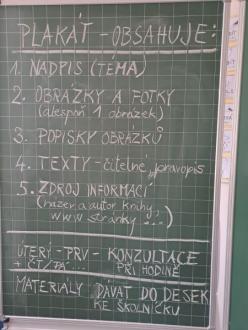 PLAKÁT - OBSAHUJE:
1. NADPIS (TÉMA)
2. OBRÁZKY A FOTKY
(alespoň 1 obrázek)
3. POPISKY OBRÁZKŮ
4. TEXTY - čitelné, pravopis
5. ZDROJ INFORMACÍ
(název a autor knihy,
www stránky ...)
ÚTERÝ - PRV - KONZULTACE
+ ČT/PÁ... PŘI HODINĚ
MATERIÁLY DÁVAT DO DESEK
KE ŠKOLNÍČKU